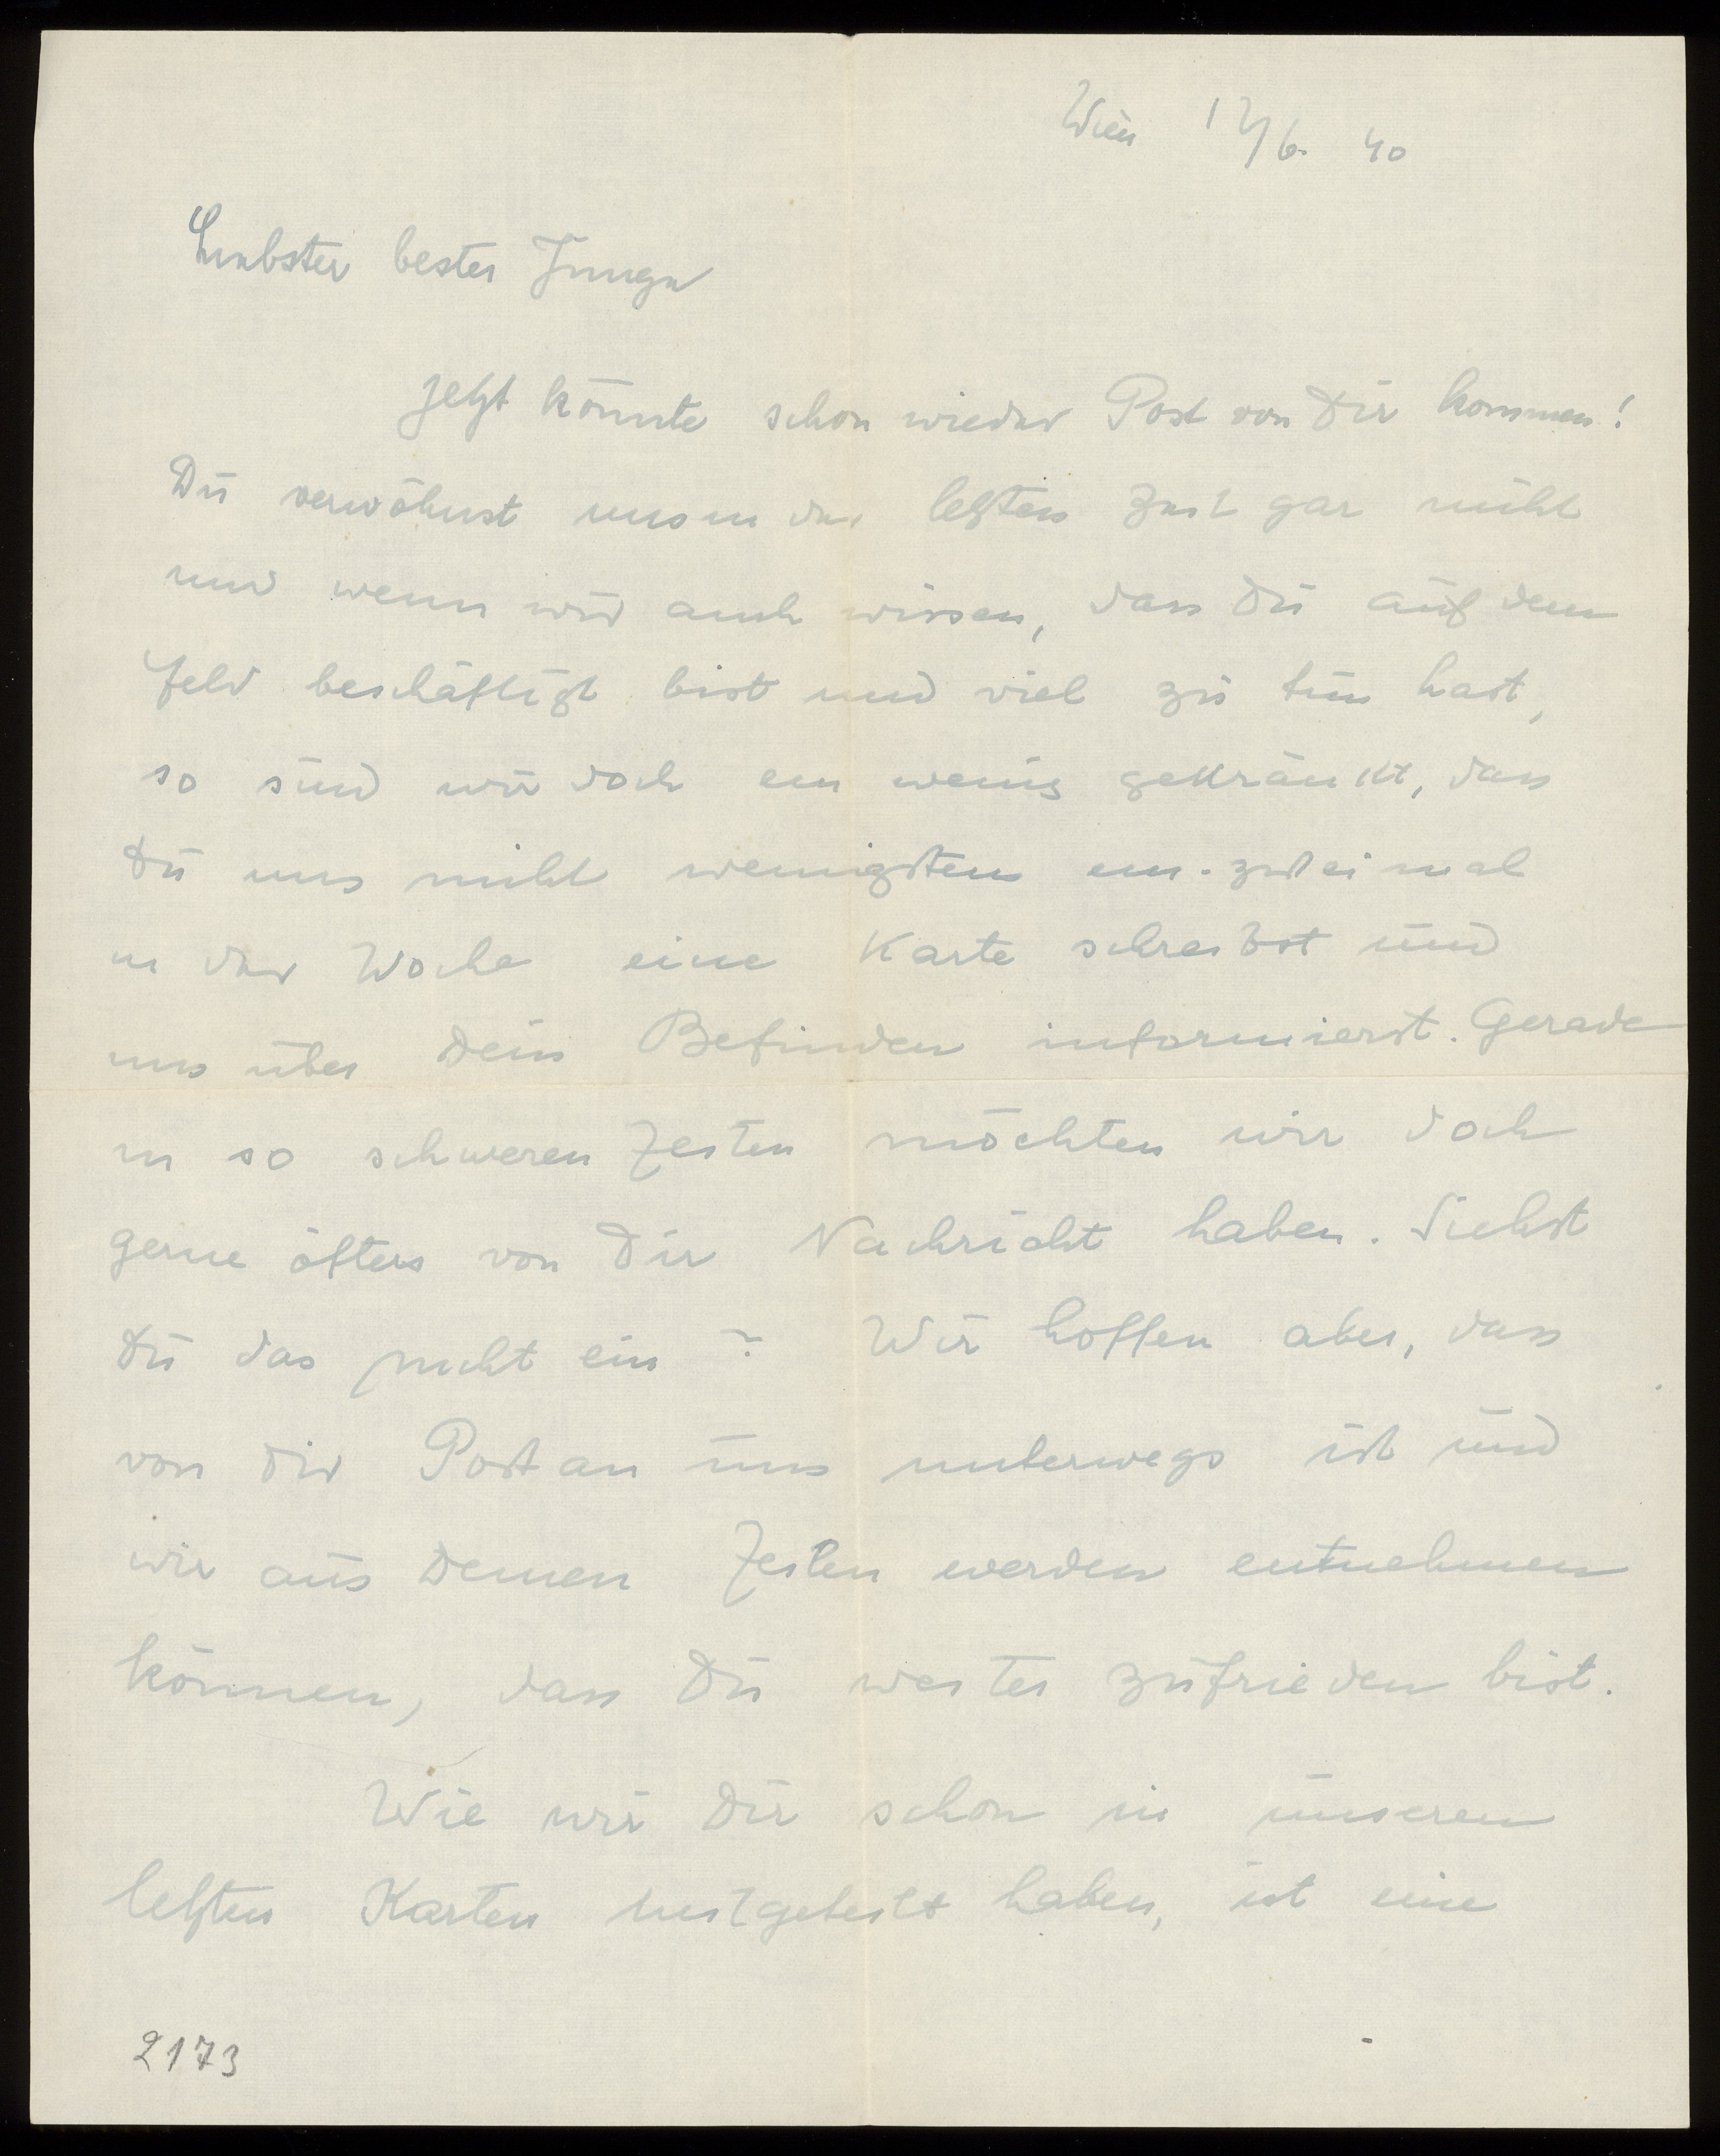 Wien 12/6. 40
Liebster bester Junge
Jetzt könnte schon wieder Post von Dir kommen!
Du verwöhnst uns in der letzten Zeit gar nicht
und wenn wir auch wissen, dass Du auf dem
Feld beschäftigt bist und viel zu tun hast,
so sind wir doch ein wenig gekränkt, dass
Du uns nicht wenigstens ein-zweimal
in der Woche eine Karte schreibst und
uns über Dein Befinden informierst. Gerade
in so schweren Zeiten möchten wir doch
gerne öfters von Dir Nachricht haben. Siehst
Du das nicht ein? Wir hoffen aber, dass
von Dir Post an uns unterwegs ist und
wir aus Deinen Zeilen werden entnehmen
können, dass Du weiter zufrieden bist.
Wie wir Dir schon in unseren
letzten Karten mitgeteilt haben, ist eine
2173